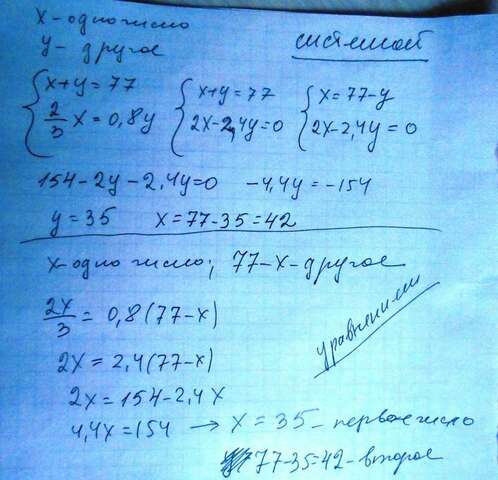 x - одно число
y - другое
системой
{ x+y=77
2/3 x = 0,8y
{ x+y=77
2x-2,4y=0
{ x=77-y
2x-2,4y=0
154-2y-2,4y=0 -4,4y=-154
y=35 x=77-35=42
x-одно число; 77-x-другое
уравнением
2x/3 = 0,8(77-x)
2x=2,4(77-x)
2x=154-2,4x
4,4x=154 → x=35-первое число
77-35=42-второе